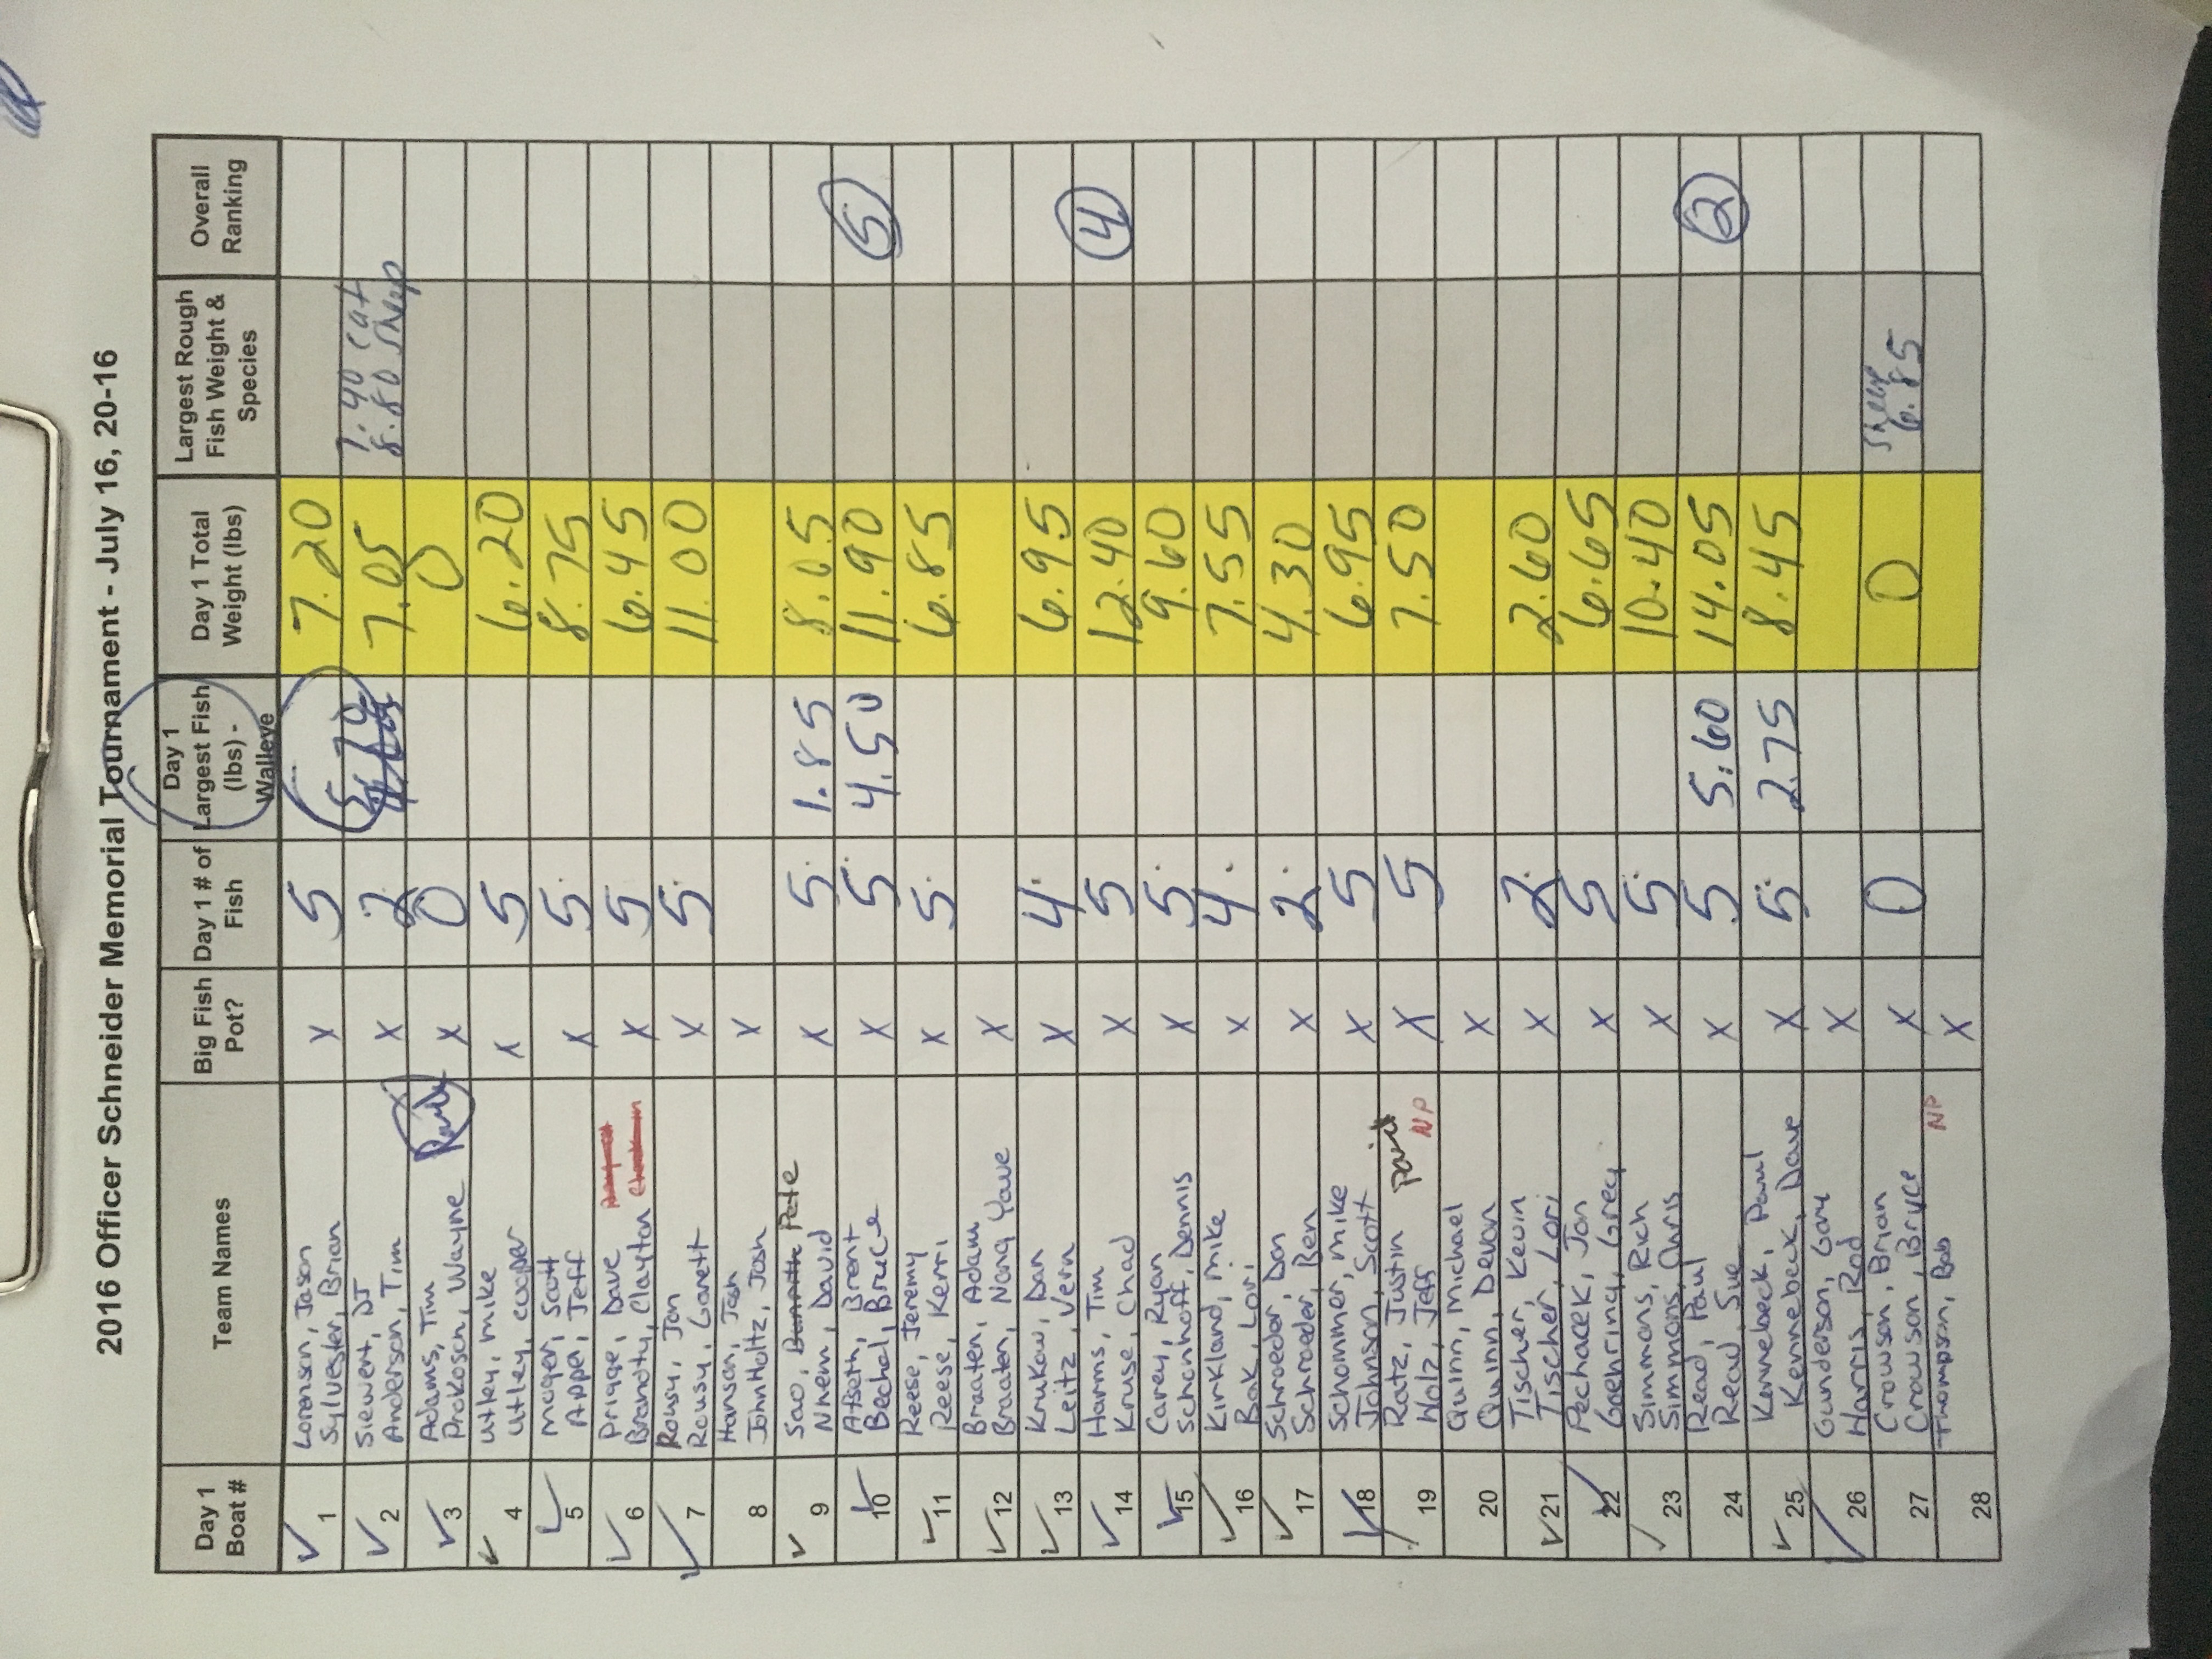 2016 Officer Schneider Memorial Tournament - July 16, 20-16
Day 1 Boat # Team Names Big Fish Pot? Day 1 # of Fish Day 1 Largest Fish (lbs) - Walleye Day 1 Total Weight (lbs) Largest Rough Fish Weight & Species Overall Ranking
1 Lorenson, Jason X 5 7.20
Sylvester, Brian
2 Siewert, DJ X 2 5.70 7.05 7.40 cat
Anderson, Tim 8.80 Sheep
3 Adams, Tim X 0 0
Prokosch, Wayne
4 Utley, mike X 5 6.20
Utley, cooper
5 Mager, Scott X 5 8.75
Appel, Jeff
6 Prigge, Dave X 5 6.45
Brandty, Clayton
7 Rousy, Jon X 5 11.00
Rousy, Garett
8 Hanson, Josh X
JohnHoltz, Josh
9 Sao, Pete X 5 1.85 8.05
Nhem, David
10 Afseth, Brent X 5 4.50 11.90 5
Bechel, Bruce
11 Reese, Jeremy X 5 6.85
Reese, Kerri
12 Braaten, Adam X
Braaten, Nang Yave
13 Krukow, Dan X 4 6.95
Leitz, Vern
14 Harms, Tim X 5 12.40 4
Kruse, Chad
15 Carey, Ryan X 5 9.60
Schonhoff, Dennis
16 Kirkland, Mike X 4 7.55
Bak, Lori
17 Schroeder, Don X 2 4.30
Schroeder, Ben
18 Schommer, mike X 5 6.95
Johnson, Scott
19 Ratz, Justin paid X 5 7.50
Walz, Jeff NP
20 Quinn, Michael X
Quinn, Devon
21 Tischer, Kevin X 2 2.60
Tischer, Lori
22 Pechacek, Jon X 5 6.65
Goehring, Greg
23 Simmons, Rich X 5 10.40
Simmons, Chris
24 Read, Paul X 5 5.60 14.05 2
Read, Sue
25 Kennebeck, Paul X 5 2.75 8.45
Kennebeck, Dave
26 Gunderson, Gary X
Harris, Rod
27 Crowson, Brian X 0 0 Sheep
Crowson, Bryce 6.85
28 Thompson, Bob NP X